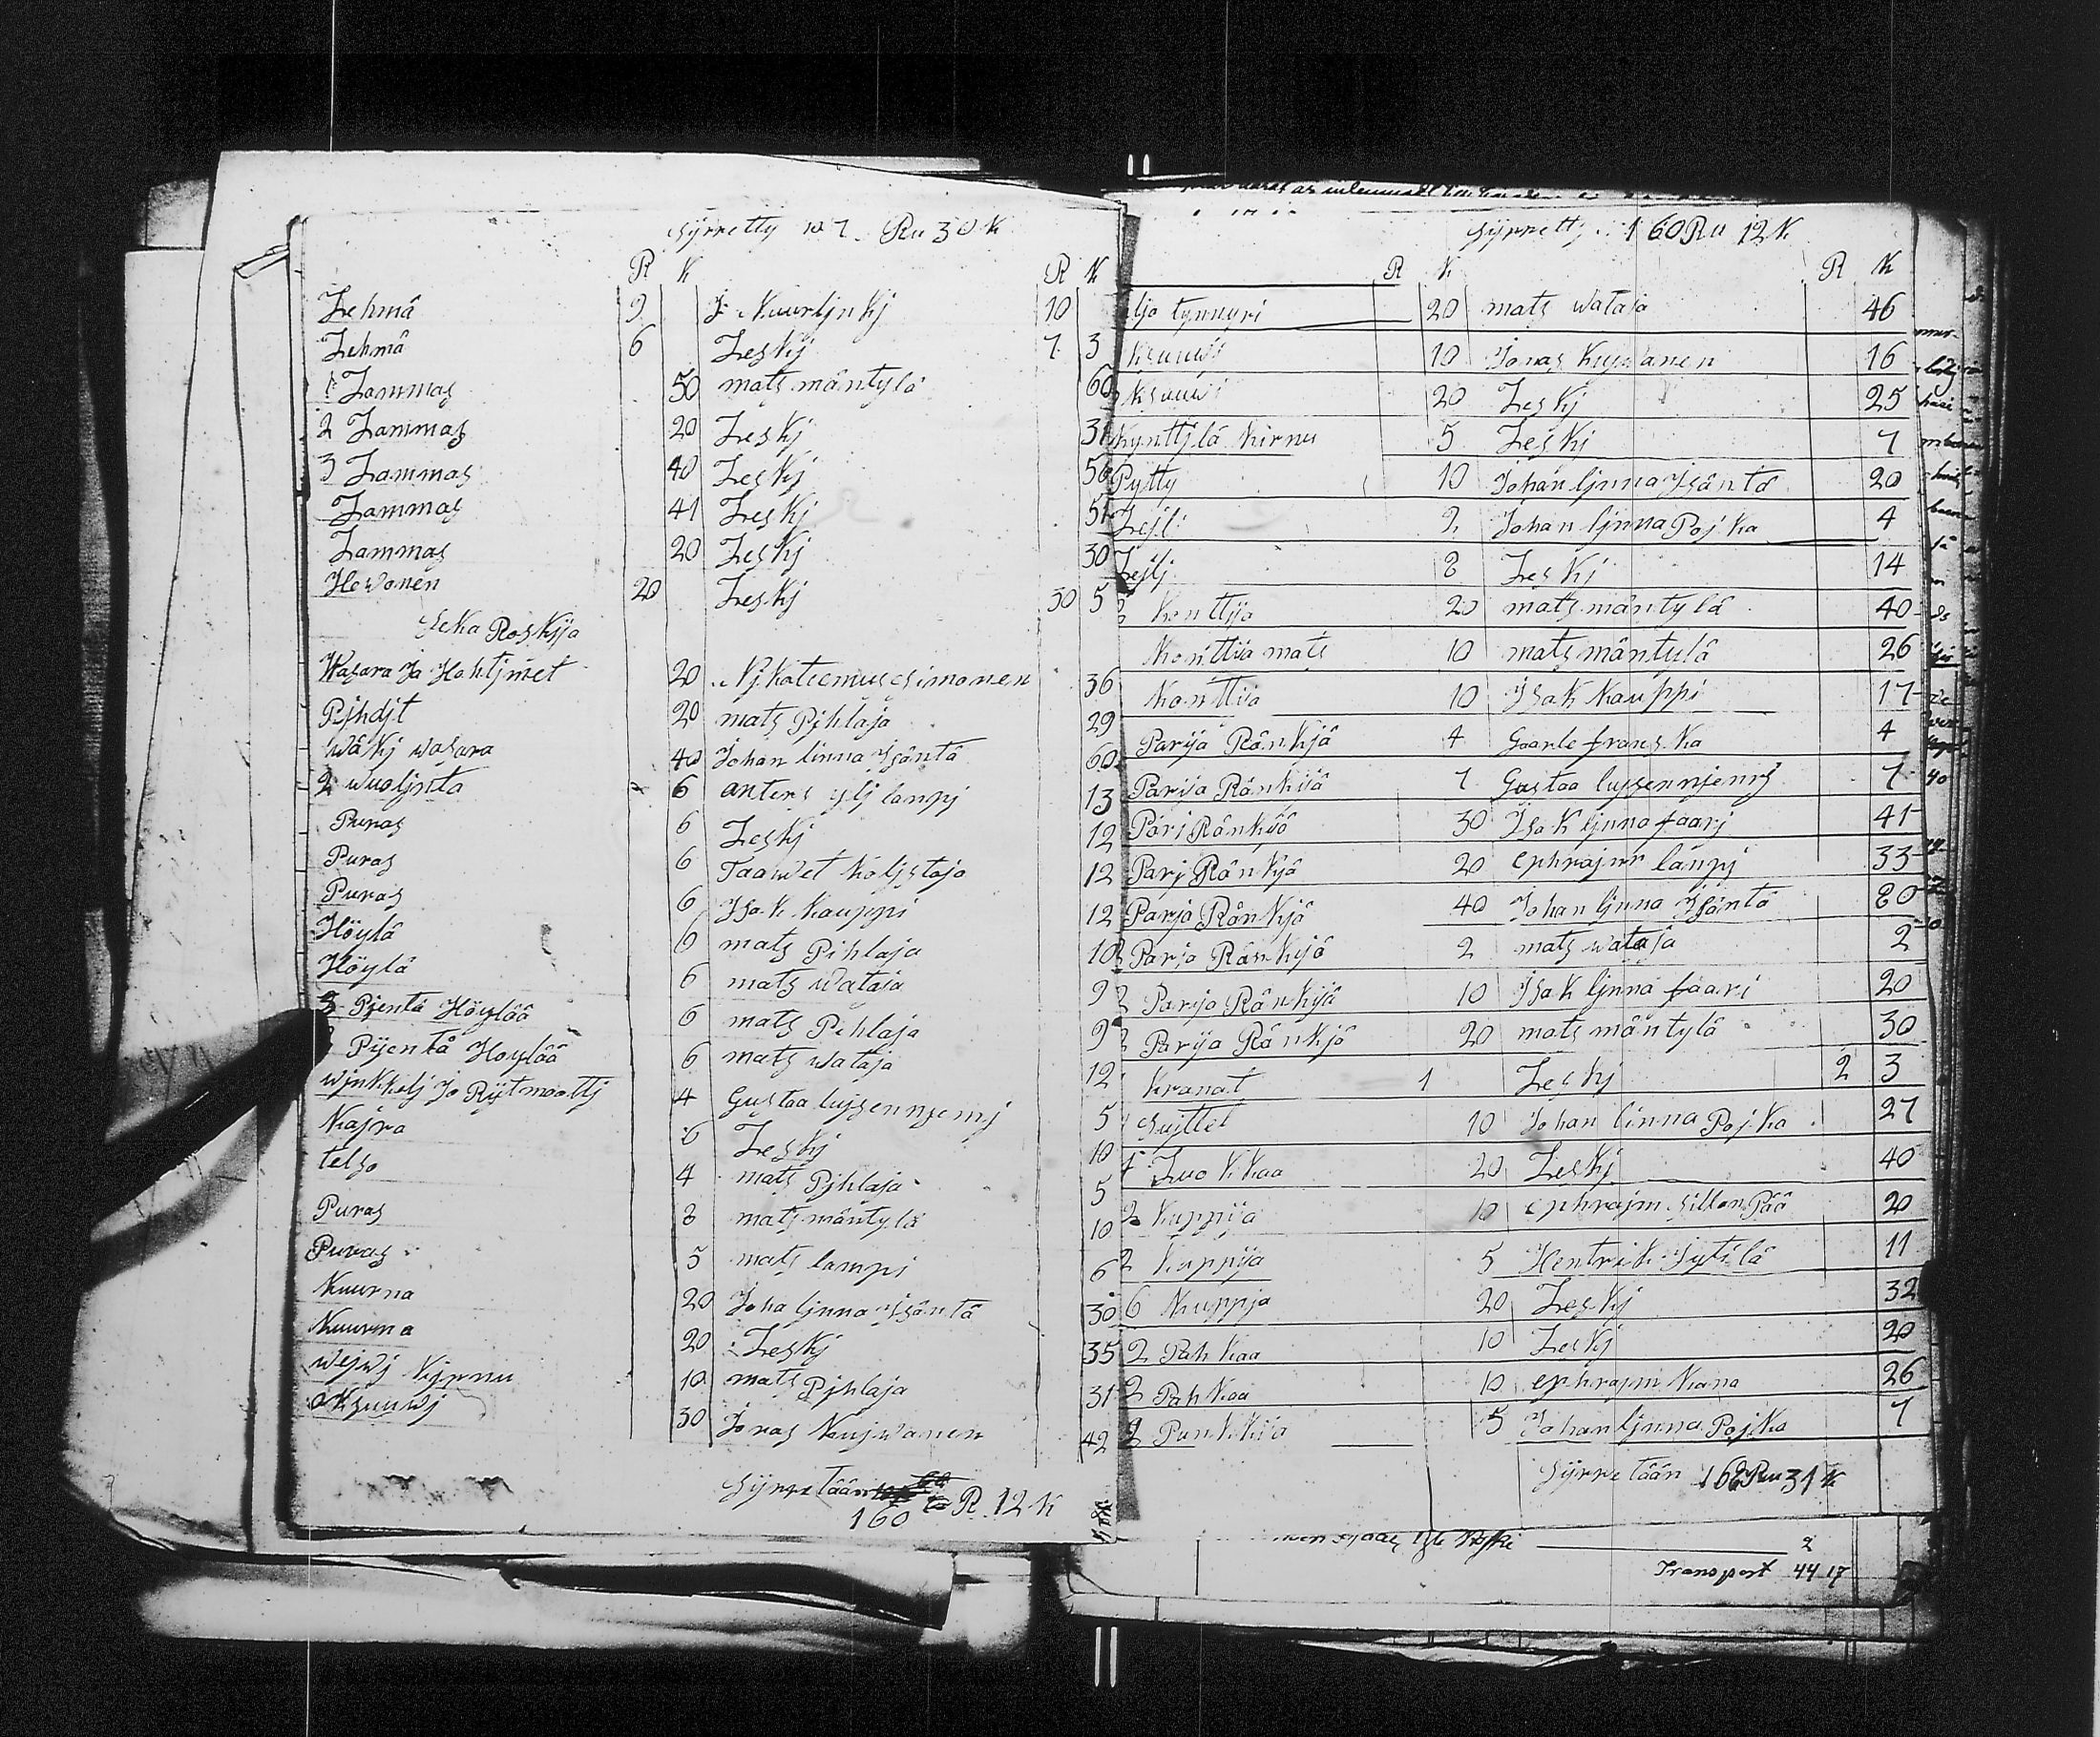 Syrretty 107 Ru 30 K
R K R K
Lehmä 9 J. Kuurljnkj 10
Lehmä 6 Leskj 7 3
1 Lammas 50 mats mäntylä 60
2 Lammas 20 Leskj 31
3 Lammas 40 Leskj 50
Lammas 41 Leskj 51
Lammas 20 Leskj 30
Hewonen 20 Leskj 30 5
Seka Roskija
Wasara Ja Hohtjmet 20 simonen 36
Pjhdjt 20 mats Pjhlaja 29
wäkj wasara 40 Johan linna Jsäntä 60
2 wuoljnta 6 anters ylj lampj 13
Puras 6 Leskj 12
Puras 6 Taawet Koljstaja 12
Puras 6 Jsak Kauppi 12
Höylä 6 mats Pihlaja 10
Höylä 6 mats wataja 9
3 Pjentä Höylää 6 mats Pihlaja 9
Pijentä Hoylää 6 mats wataja 12
wjnkkelj Ja Rijtmoottj 4 Gustaa lujsennjemj 5
Kajra 6 Leskj 10
telso 4 mats Pjhlaja 5
Puras 8 mats mäntylä 10
Puras 5 mats lampi 6
Kuurna 20 Joha ljnna Jsäntä 30
Kuurna 20 Leskj 35
wejwj Kijrnu 10 mats Pjhlaja 31
oksuuwj 30 Jonas Kujwanen 42
Syrretään 160 R. 12 K
Syrretty 160 Ru 12 K
R K R K
ljo tynnyri 20 mats wataja 46
Ksuuwi 10 Jonas Kujwanen 16
Ksuuwi 20 Leskj 25
Kynttjlä Kirnu 5 Leskj 7
Pytty 10 Johan ljnna Jsäntä 20
Lejli 2 Johan ljnna Pojka 4
Lejlj 8 Leskj 14
Konttija 20 mats mäntylä 40
Konttija mats 10 mats mäntylä 26
Konttija 10 Jsak Kauppi 17
Parija Ränkjä 4 Gaarle frans Ka 4
Parija Ränkijä 7 Gustaa lujsennjemj 7
Pari Ränkjä 30 Jsak ljnna faarj 41
Parj Ränkjä 20 ephrajm lampj 33
Parja Ränkjä 40 Johan ljnna Jsäntä 80
Parja Ränkijä 2 mats wataja 2
2 Parija Ränkijä 10 Jsak ljnna faari 20
2 Parija Ränkjä 20 mats mäntylä 30
Kranat 1 Leskj 2 3
Sujttet 10 Johan linna Pojka 27
4 Luokkaa 20 Leskj 40
2 Kuppija 10 ephrajm sillan Pää 20
2 Kuppija 5 Hentrik Sytilä 11
6 Kuppja 20 Leskj 32
2 Pahkaa 10 Leskj 20
2 Pahkaa 10 ephrajm Kana 26
2 Punkkija 5 Johan ljnna Pojka 7
Syrretään 168 Ru 31 K
2
Transport 44 17